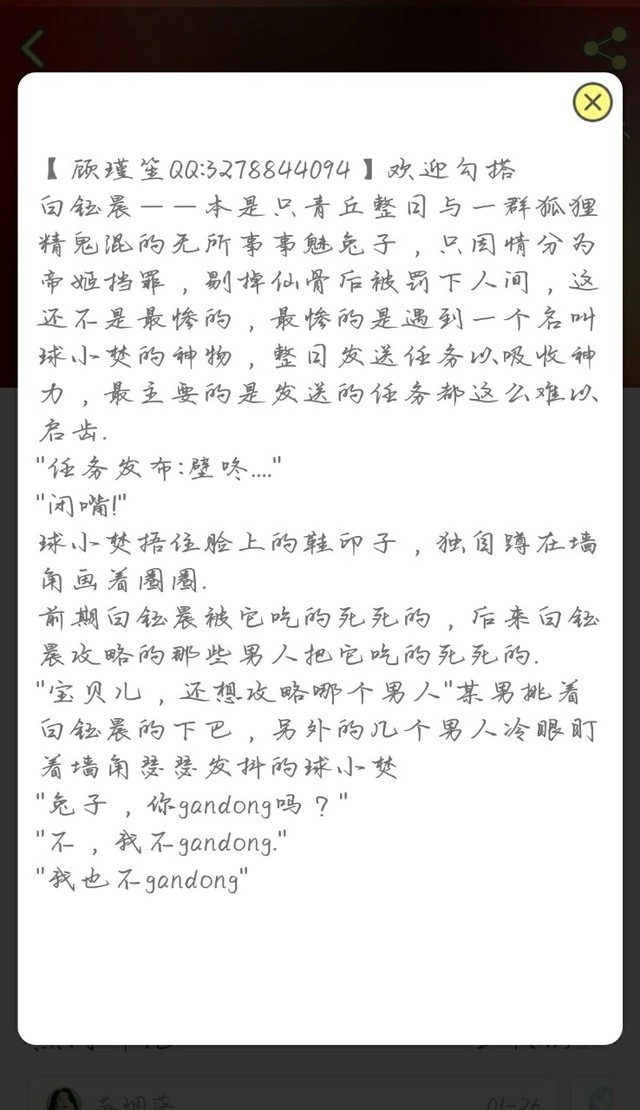 【 顾瑾笙QQ:3278844094 】欢迎勾搭
白钰晨——本是只青丘整日与一群狐狸
精鬼混的无所事事魅兔子，只因情分为
帝姬挡罪，剔掉仙骨后被罚下人间，这
还不是最惨的，最惨的是遇到一个名叫
球小焚的神物，整日发送任务以吸收神
力，最主要的是发送的任务都这么难以
启齿.
"任务发布:壁咚...."
"闭嘴!"
球小焚捂住脸上的鞋印子，独自蹲在墙
角画着圈圈.
前期白钰晨被它吃的死死的，后来白钰
晨攻略的那些男人把它吃的死死的.
"宝贝儿，还想攻略哪个男人"某男挑着
白钰晨的下巴，另外的几个男人冷眼盯
着墙角瑟瑟发抖的球小焚
"兔子，你gandong吗？"
"不，我不gandong."
"我也不gandong"
01-26